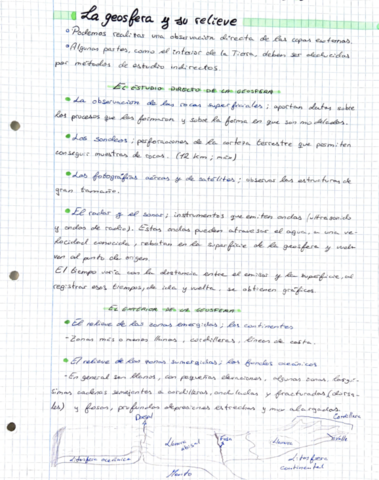 La geosfera y su relieve
Podemos realizar una observación directa de las capas externas.
Algunas partes, como el interior de la Tierra, deben ser deducidas
por métodos de estudio indirectos.
EL ESTUDIO DIRECTO DE LA GEOSFERA
La observación de las rocas superficiales; aportan datos sobre
los procesos que las formaron y sobre la forma en que son modeladas.
Los sondeos; perforaciones de la corteza terrestre que permiten
conseguir muestras de rocas. (12 km; máx)
Las fotografías aéreas y de satélites; observar las estructuras de
gran tamaño.
El radar y el sonar; instrumentos que emiten ondas (ultrasonido
y ondas de radio). Estas ondas pueden atravesar el agua, a una ve-
locidad conocida, rebotan en la superficie de la geosfera y vuel-
ven al punto de origen.
El tiempo varía con la distancia entre el emisor y la superficie, al
registrar esos tiempos, de ida y vuelta, se obtienen gráficos.
EL EXTERIOR DE LA GEOSFERA
El relieve de las zonas emergidas; los continentes
- Zonas más o menos llanas, cordilleras, líneas de costa.
El relieve de las zonas sumergidas; los fondos oceánicos
- En general son llanos, con pequeñas elevaciones, algunas zonas largí-
simas cadenas semejantes a cordilleras, onduladas y fracturadas (dorsa-
les) y fosas, profundas depresiones estrechas y muy alargadas.
Cordillera
Dorsal
Llanura
abisal
Fosa
Llanura
Litosfera oceánica
Litosfera
continental
Manto